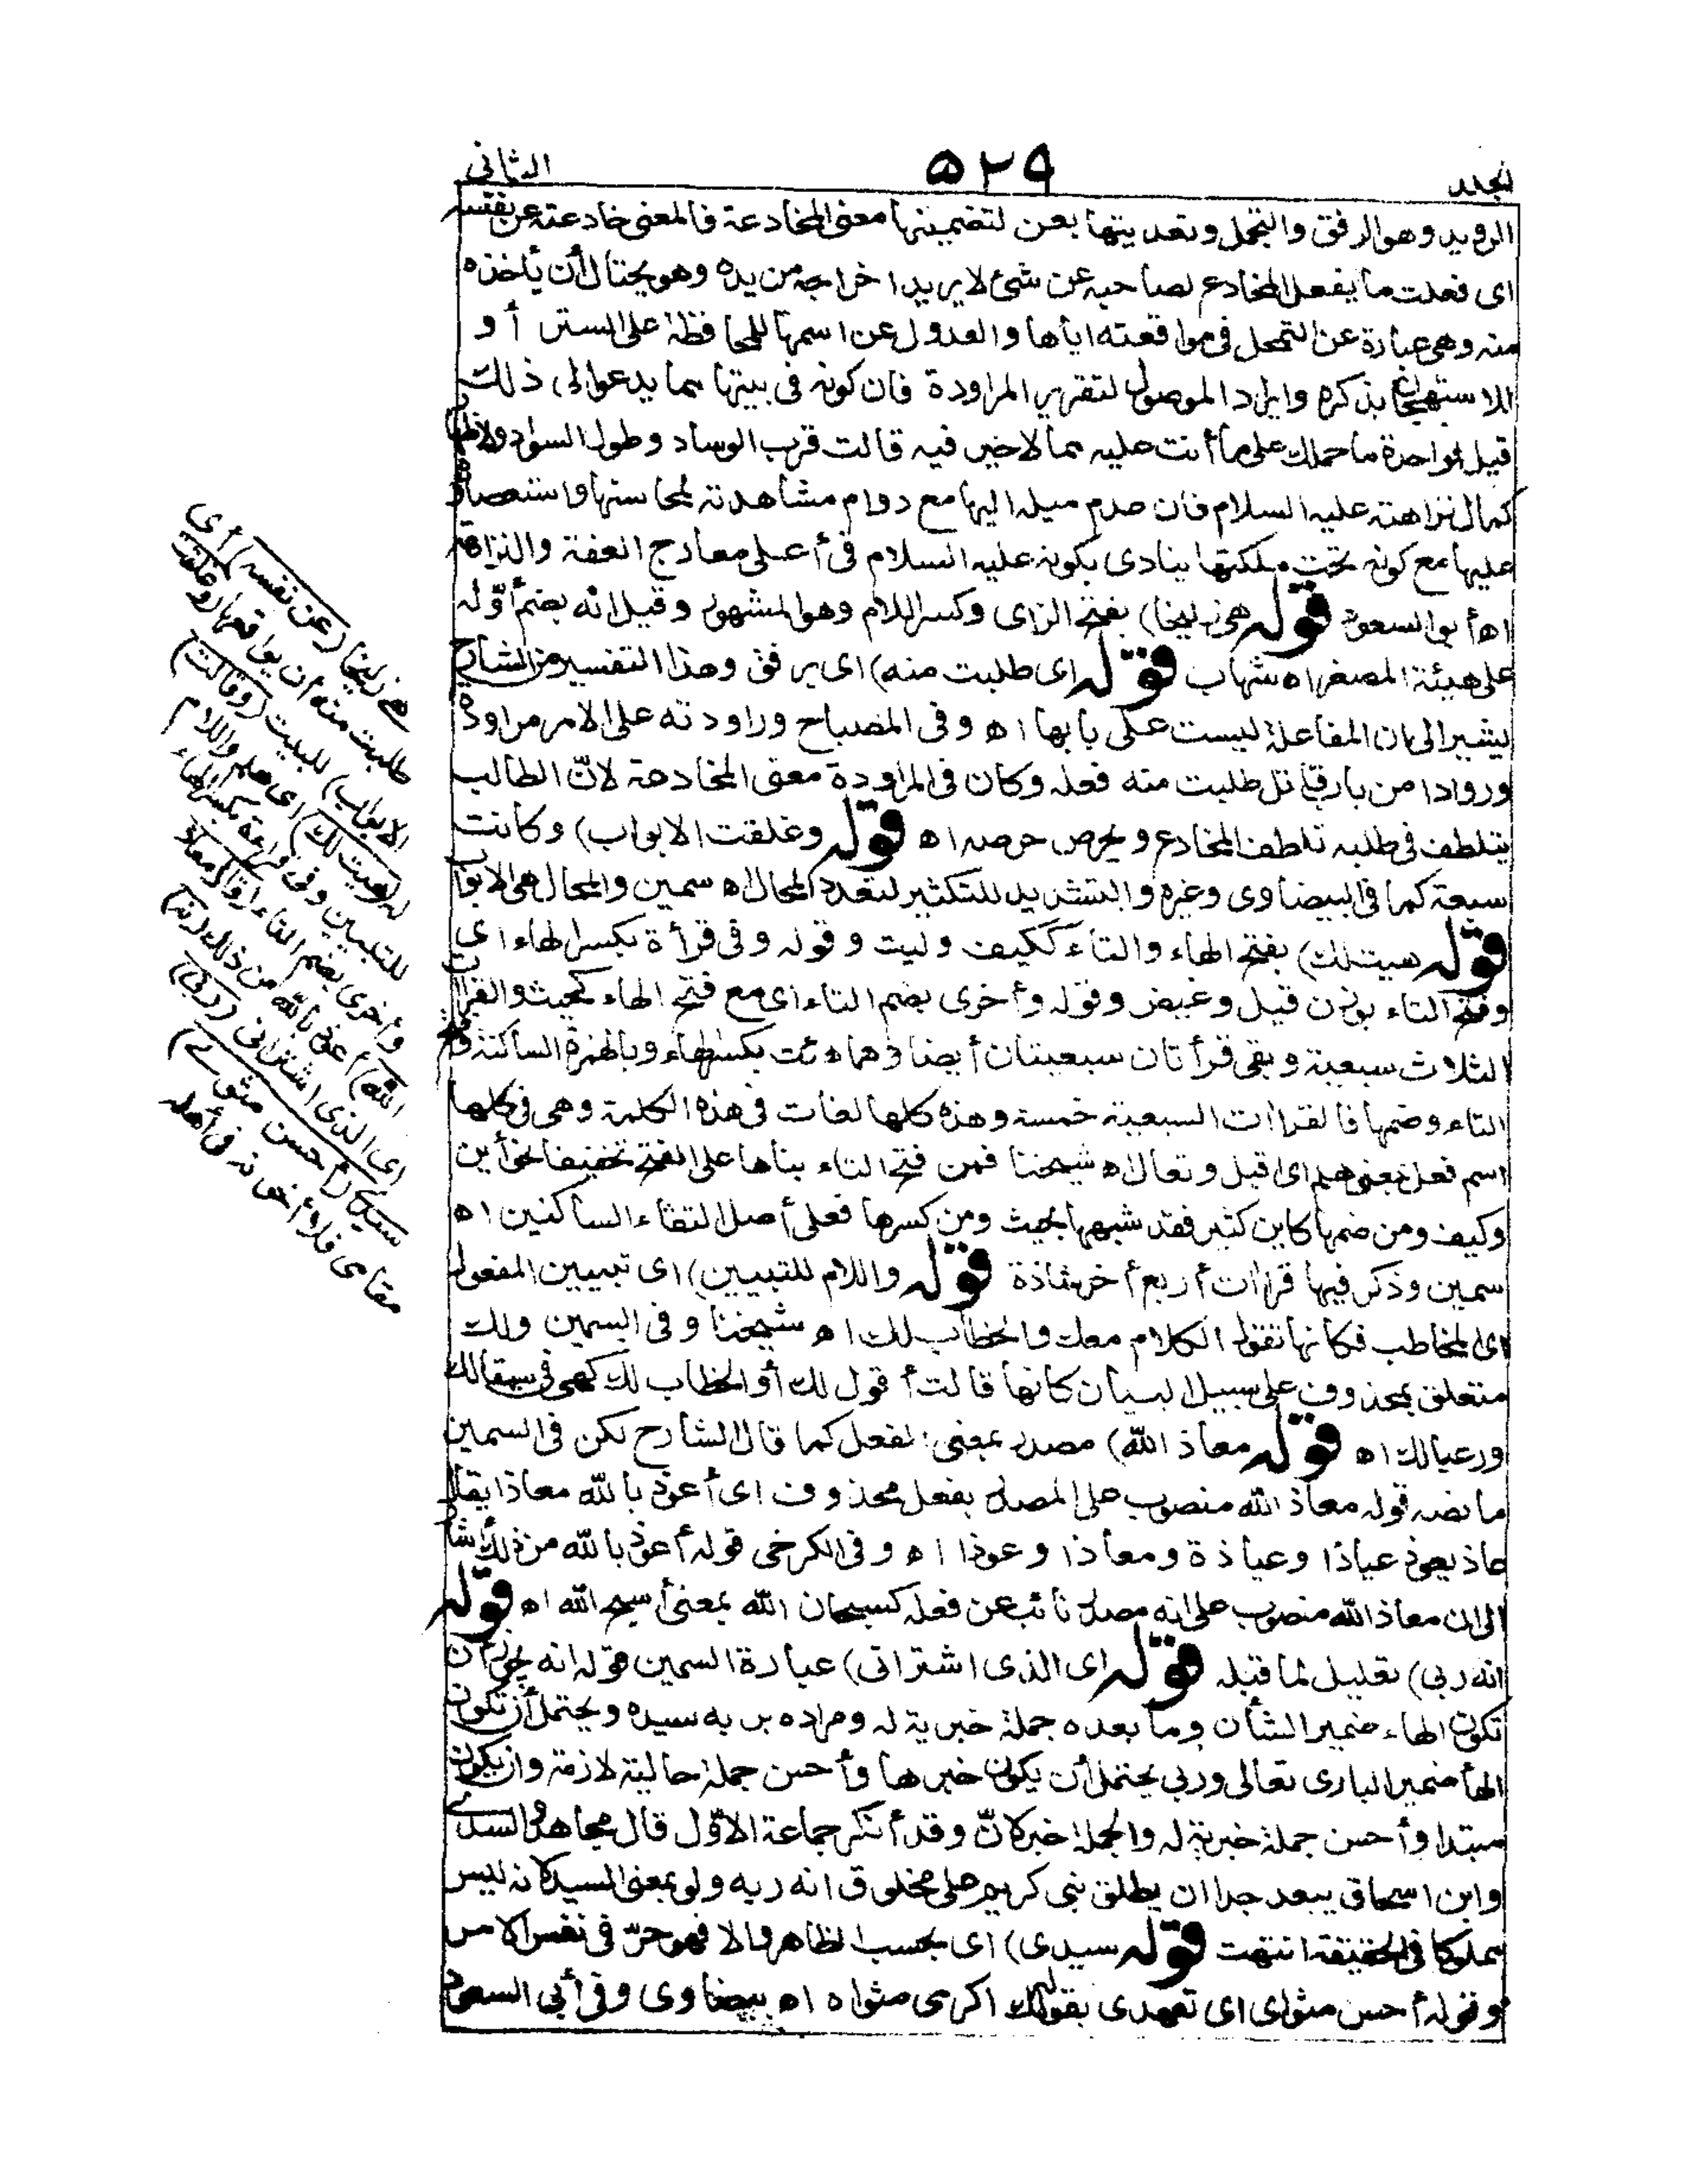 المجلد
٥٢٩
الثانى
الرويد وهو الرفق والتجمل وتعديتها بعن لتضمينها معنى المخادعة فالمعنى خادعته عن نفسه
اى فعلت ما يفعل المخادع لصاحبه عن شئ لا يريد اخراجه من يده وهو يحتال أن يأخذه
منه وهى عبارة عن التمحل فى مواقعته اياها والعدول عن اسمها للمحافظة على الستر أو
للاستهجان بذكره وايراد الموصول لتقرير المراودة فان كونه فى بيتها مما يدعو الى ذلك
قيل لواحدة ما حملك على ما أنت عليه مما لا خير فيه قالت قرب الوساد وطول السواد ولاظهار
كمال نزاهته عليه السلام فان عدم ميله اليها مع دوام مشاهدته لمحاسنها واستعصاؤه
عليها مع كونه تحت ملكتها ينادى بكونه عليه السلام فى أعلى معارج العفة والنزاهة
اه أبو السعود قوله هى زليخا) بفتح الزاى وكسر اللام وهو المشهور وقيل انه بضم أوّله
على هيئة المصغر اه شهاب قوله اى طلبت منه) اى برفق وهذا التفسير من الشارح
يشير الى ان المفاعلة ليست على بابها اه وفى المصباح وراودته على الامر مراودة
وروادا من باب قاتل طلبت منه فعله وكان فى المراودة معنى المخادعة لانّ الطالب
يتلطف فى طلبه تلطف المخادع ويحرص حرصه اه قوله وغلقت الابواب) وكانت
سبعة كما فى البيضاوى وغيره والتشديد للتكثير لتعدد المحال اه سمين والمحال هى الابواب
قوله هيت لك) بفتح الهاء والتاء ككيف وليت وقوله وفى قرأة بكسر الهاء اى
وفتح التاء بوزن قيل وغيض وقوله وأخرى بضم التاء اى مع فتح الهاء كحيث والقراآت
الثلاث سبعية وبقى قرأتان سبعيتان أيضا وهما هئت بكسر الهاء وبالهمزة الساكنة وفتح
التاء وضمها فالقراات السبعية خمسة وهذه كلها لغات فى هذه الكلمة وهى فى كلها
اسم فعل بمعنى هلم اى اقبل وتعال اه شيخنا فمن فتح التاء بناها على الفتح تخفيفا نحو أين
وكيف ومن ضمها كابن كثير فقد شبهها بحيث ومن كسرها فعلى أصل التقاء الساكنين اه
سمين وذكر فيها قراات أربع أخر شاذة قوله واللام للتبيين) اى تبيين المفعول
اى المخاطب فكانها تقول الكلام معك والخطاب لك اه شيخنا وفى السمين ولك
متعلق بمحذوف على سبيل البيان كانها قالت أقول لك أو الخطاب لك كهى فى سقيا لك
ورعيا لك اه قوله معاذ الله) مصدر بمعنى الفعل كما قال الشارح لكن فى السمين
ما نصه قوله معاذ الله منصوب على المصدر بفعل محذوف اى أعوذ بالله معاذا يقال
عاذ يعوذ عياذا وعياذة ومعاذا وعوذا اه وفى الكرخى قوله أعوذ بالله من ذلك أشار
الى ان معاذ الله منصوب على انه مصدر نائب عن فعله كسبحان الله بمعنى أسبح الله اه قوله
انه ربى) تعليل لما قبله قوله اى الذى اشترانى) عبارة السمين قوله انه يجوز أن
تكون الهاء ضمير الشأن وما بعده جملة خبرية له ومراده بربه سيده ويحتمل أن تكون
الهأ ضمير البارى تعالى وربى يحتمل أن يكون خبرها وأحسن جملة حالية لازمة وان يكون
مبتدا وأحسن جملة خبرية له والجملة خبر لانّ وقد أنكر جماعة الاوّل قال مجاهد والسدى
وابن اسحاق يبعد جدا ان يطلق نبى كريم على مخلوق انه ربه ولو بمعنى السيد لانه ليس
مملوكا فى الحقيقة انتهت قوله سيدى) اى بحسب الظاهر والا فهو حرّ فى نفس الامر
وقوله أحسن مثواى اى تعهدى بقوله لك اكرمى مثواه اه بيضاوى وفى أبى السعود
هى زليخا (عن نفسه) أى
طلبت منه أن يواقعها (وغلقت
الابواب) للبيت (وقالت)
له (هيت لك) اى هلم واللام
للتبيين وفى قراءة بكسر الهاء
وأخرى بضم التاء (قال معاذ
الله) أعوذ بالله من ذلك (انه)
اى الذى اشترانى (ربى)
سيدى (أحسن مثواى)
مقامى فلا أخونه فى أهله